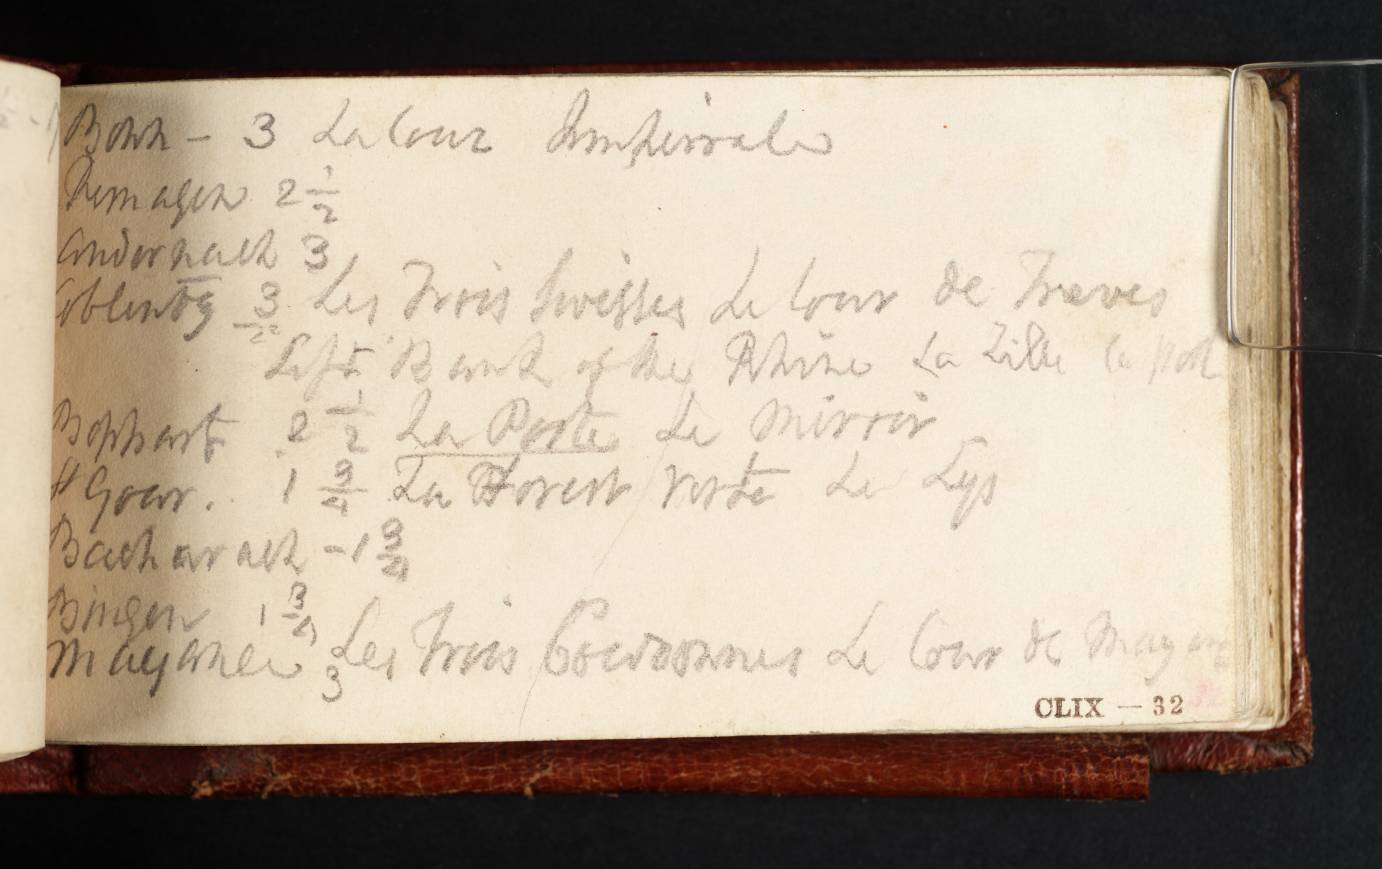 Bonn – 3 La Cour Imperiale
Remagen 2 1/2
Andernach 3
Coblentz 3/2 Les Trois Swisses Le Cour de Treves
Left Bank of the Rhine La Ville la Post
Bophart 2 1/2 La Poste Le Mirroir
St Goar. 1 3/4 La Forest verte Le Lys
Bacharach – 1 3/4
Bingen 1 3/4
Mayence 3 Les Trois Couronnes Le Cour de Mayence
CLIX – 32